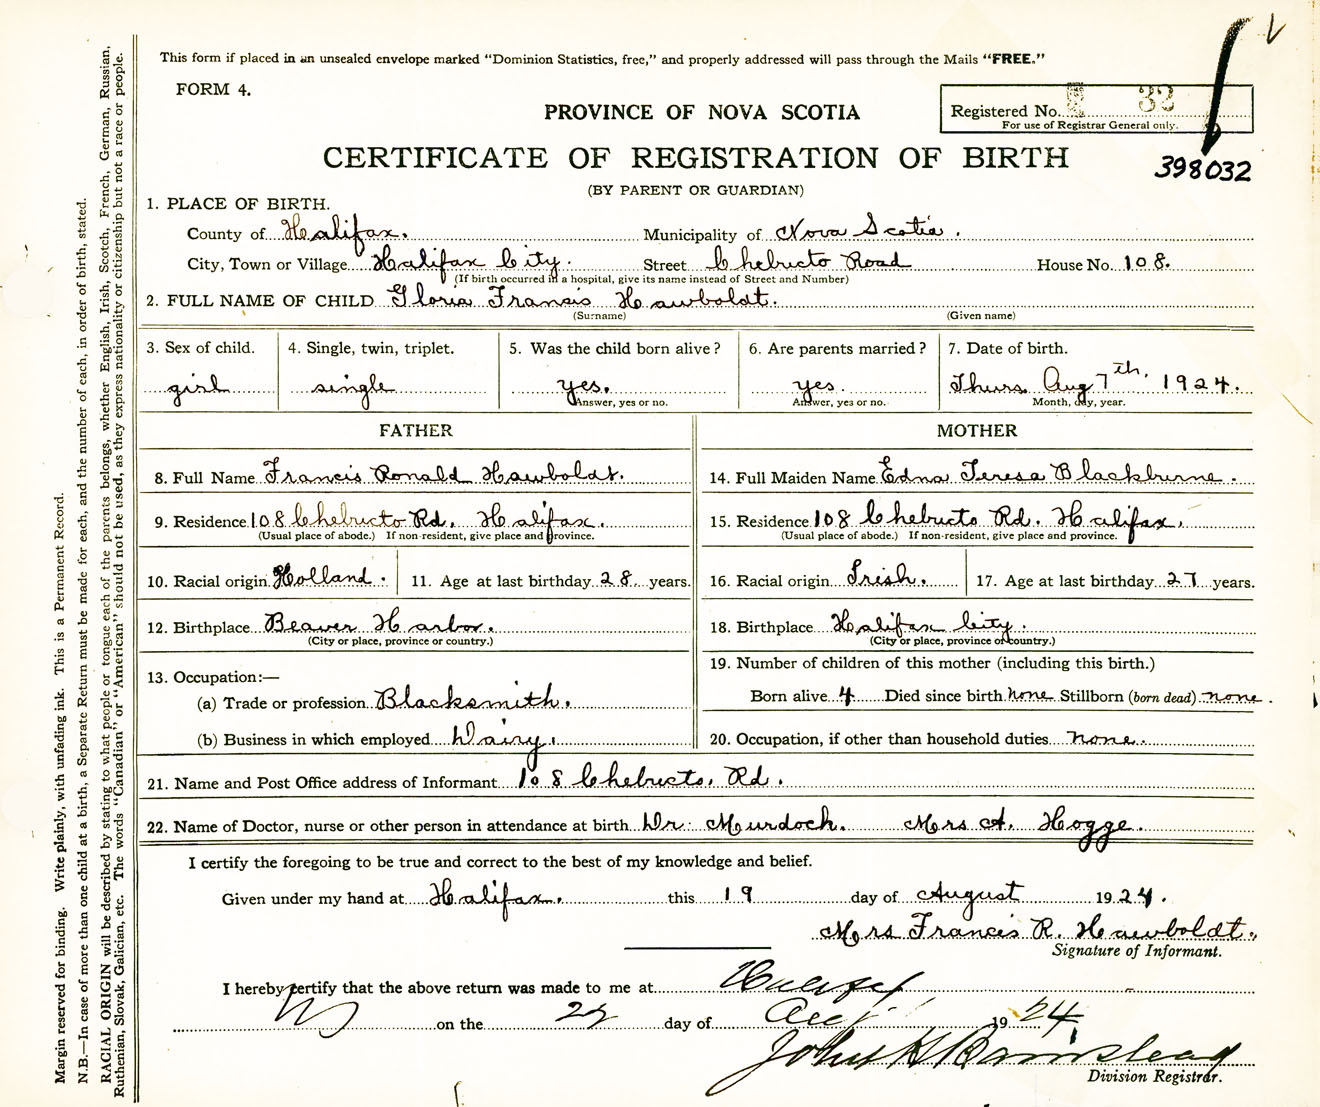 This form if placed in an unsealed envelope marked “Dominion Statistics, free,” and properly addressed will pass through the Mails “FREE.”
FORM 4.
Registered No. 32
For use of Registrar General only.
PROVINCE OF NOVA SCOTIA
CERTIFICATE OF REGISTRATION OF BIRTH
398032
(BY PARENT OR GUARDIAN)
1. PLACE OF BIRTH.
County of Halifax. Municipality of Nova Scotia.
City, Town or Village Halifax City. Street Chebucto Road House No. 108.
(If birth occurred in a hospital, give its name instead of Street and Number)
2. FULL NAME OF CHILD Gloria Francis Hawboldt.
(Surname) (Given name)
3. Sex of child. 4. Single, twin, triplet. 5. Was the child born alive? 6. Are parents married? 7. Date of birth.
girl single yes. yes. Thurs Aug 7th. 1924.
Answer, yes or no. Answer, yes or no. Month, day, year.
FATHER MOTHER
8. Full Name Francis Ronald Hawboldt. 14. Full Maiden Name Edna Teresa Blackburne.
9. Residence 108 Chebructo Rd. Halifax. 15. Residence 108 Chebructo Rd. Halifax.
(Usual place of abode.) If non-resident, give place and province. (Usual place of abode.) If non-resident, give place and province.
10. Racial origin Holland. 11. Age at last birthday 28 years. 16. Racial origin Irish. 17. Age at last birthday 27 years.
12. Birthplace Beaver Harbor. 18. Birthplace Halifax City.
(City or place, province or country.) (City or place, province or country.)
13. Occupation:— 19. Number of children of this mother (including this birth.)
(a) Trade or profession Blacksmith. Born alive 4 Died since birth none Stillborn (born dead) none.
(b) Business in which employed Dairy. 20. Occupation, if other than household duties none.
21. Name and Post Office address of Informant 108 Chebructo. Rd.
22. Name of Doctor, nurse or other person in attendance at birth Dr. Murdoch. Mrs A. Hogge.
I certify the foregoing to be true and correct to the best of my knowledge and belief.
Given under my hand at Halifax. this 19 day of August 1924.
Mrs Francis R. Hawboldt.
Signature of Informant.
I hereby certify that the above return was made to me at Halifax
on the day of Aug 1924
John H Barnstead
Division Registrar.
Margin reserved for binding. Write plainly, with unfading ink. This is a Permanent Record.
N.B.—In case of more than one child at a birth, a Separate Return must be made for each, and the number of each, in order of birth, stated.
RACIAL ORIGIN will be described by stating to what people or tongue each of the parents belongs, whether English, Irish, Scotch, French, German, Russian,
Ruthenian, Slovak, Galician, etc. The words “Canadian” or “American” should not be used, as they express nationality or citizenship but not a race or people.